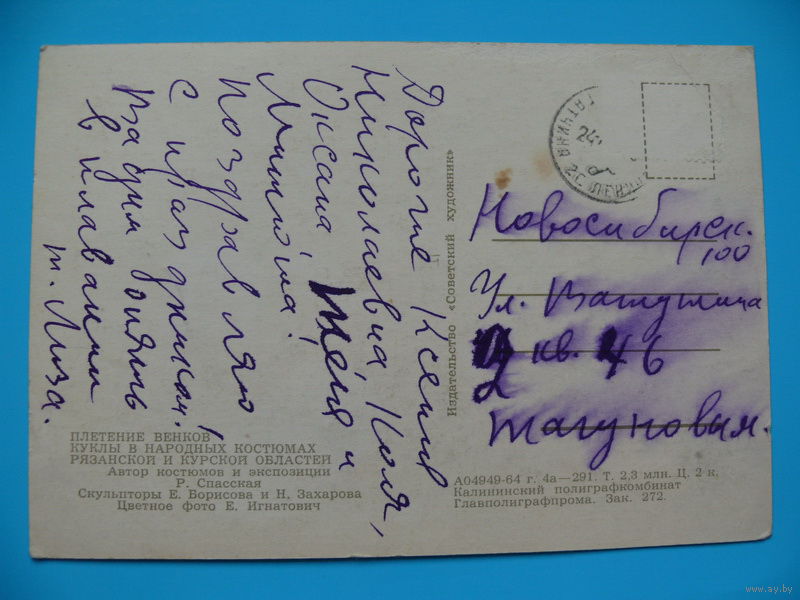 Дорогие Ксения
Николаевна, Коля,
Оксана, Женя и
Мишта!
Поздравляю
с праздником!
Вадим опять
в плавании
т. Лиза.
Издательство «Советский художник»
ГАТЧИНА
24
Новосибирск
100
Ул. Ватутина
кв. 46
Тагуновым.
ПЛЕТЕНИЕ ВЕНКОВ
КУКЛЫ В НАРОДНЫХ КОСТЮМАХ
РЯЗАНСКОЙ И КУРСКОЙ ОБЛАСТЕЙ
Автор костюмов и экспозиции
Р. Спасская
Скульпторы Е. Борисова и Н. Захарова
Цветное фото Е. Игнатович
А04949-64 г. 4а—291. Т. 2,3 млн. Ц. 2 к.
Калининский полиграфкомбинат
Главполиграфпрома. Зак. 272.
www.ay.by